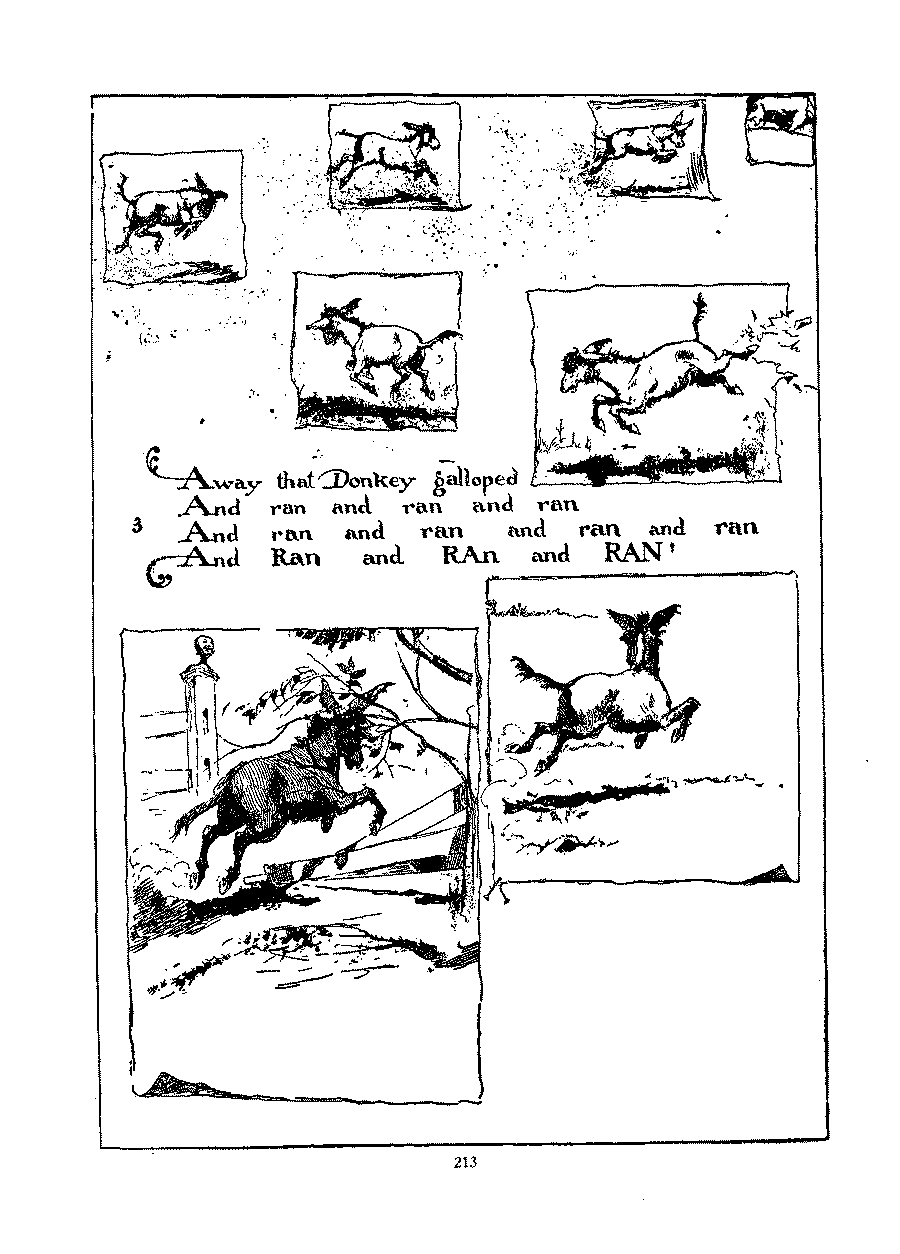 Away that Donkey galloped
And ran and ran and ran
3 And ran and ran and ran and ran
And Ran and RAn and RAN!
213